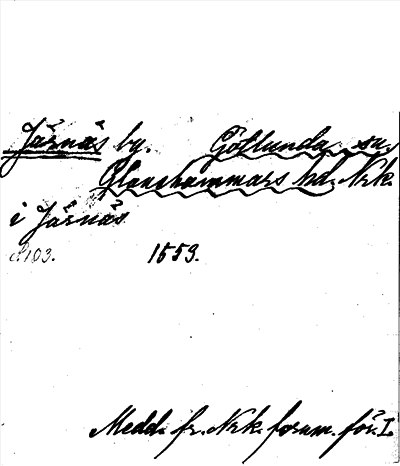 Järnäs by. Götlunda sn.
Glanshammars hd. Nrk.
i Järnäs
s. 103. 1559.
Medd. fr. Nrk. fornm. för. I.